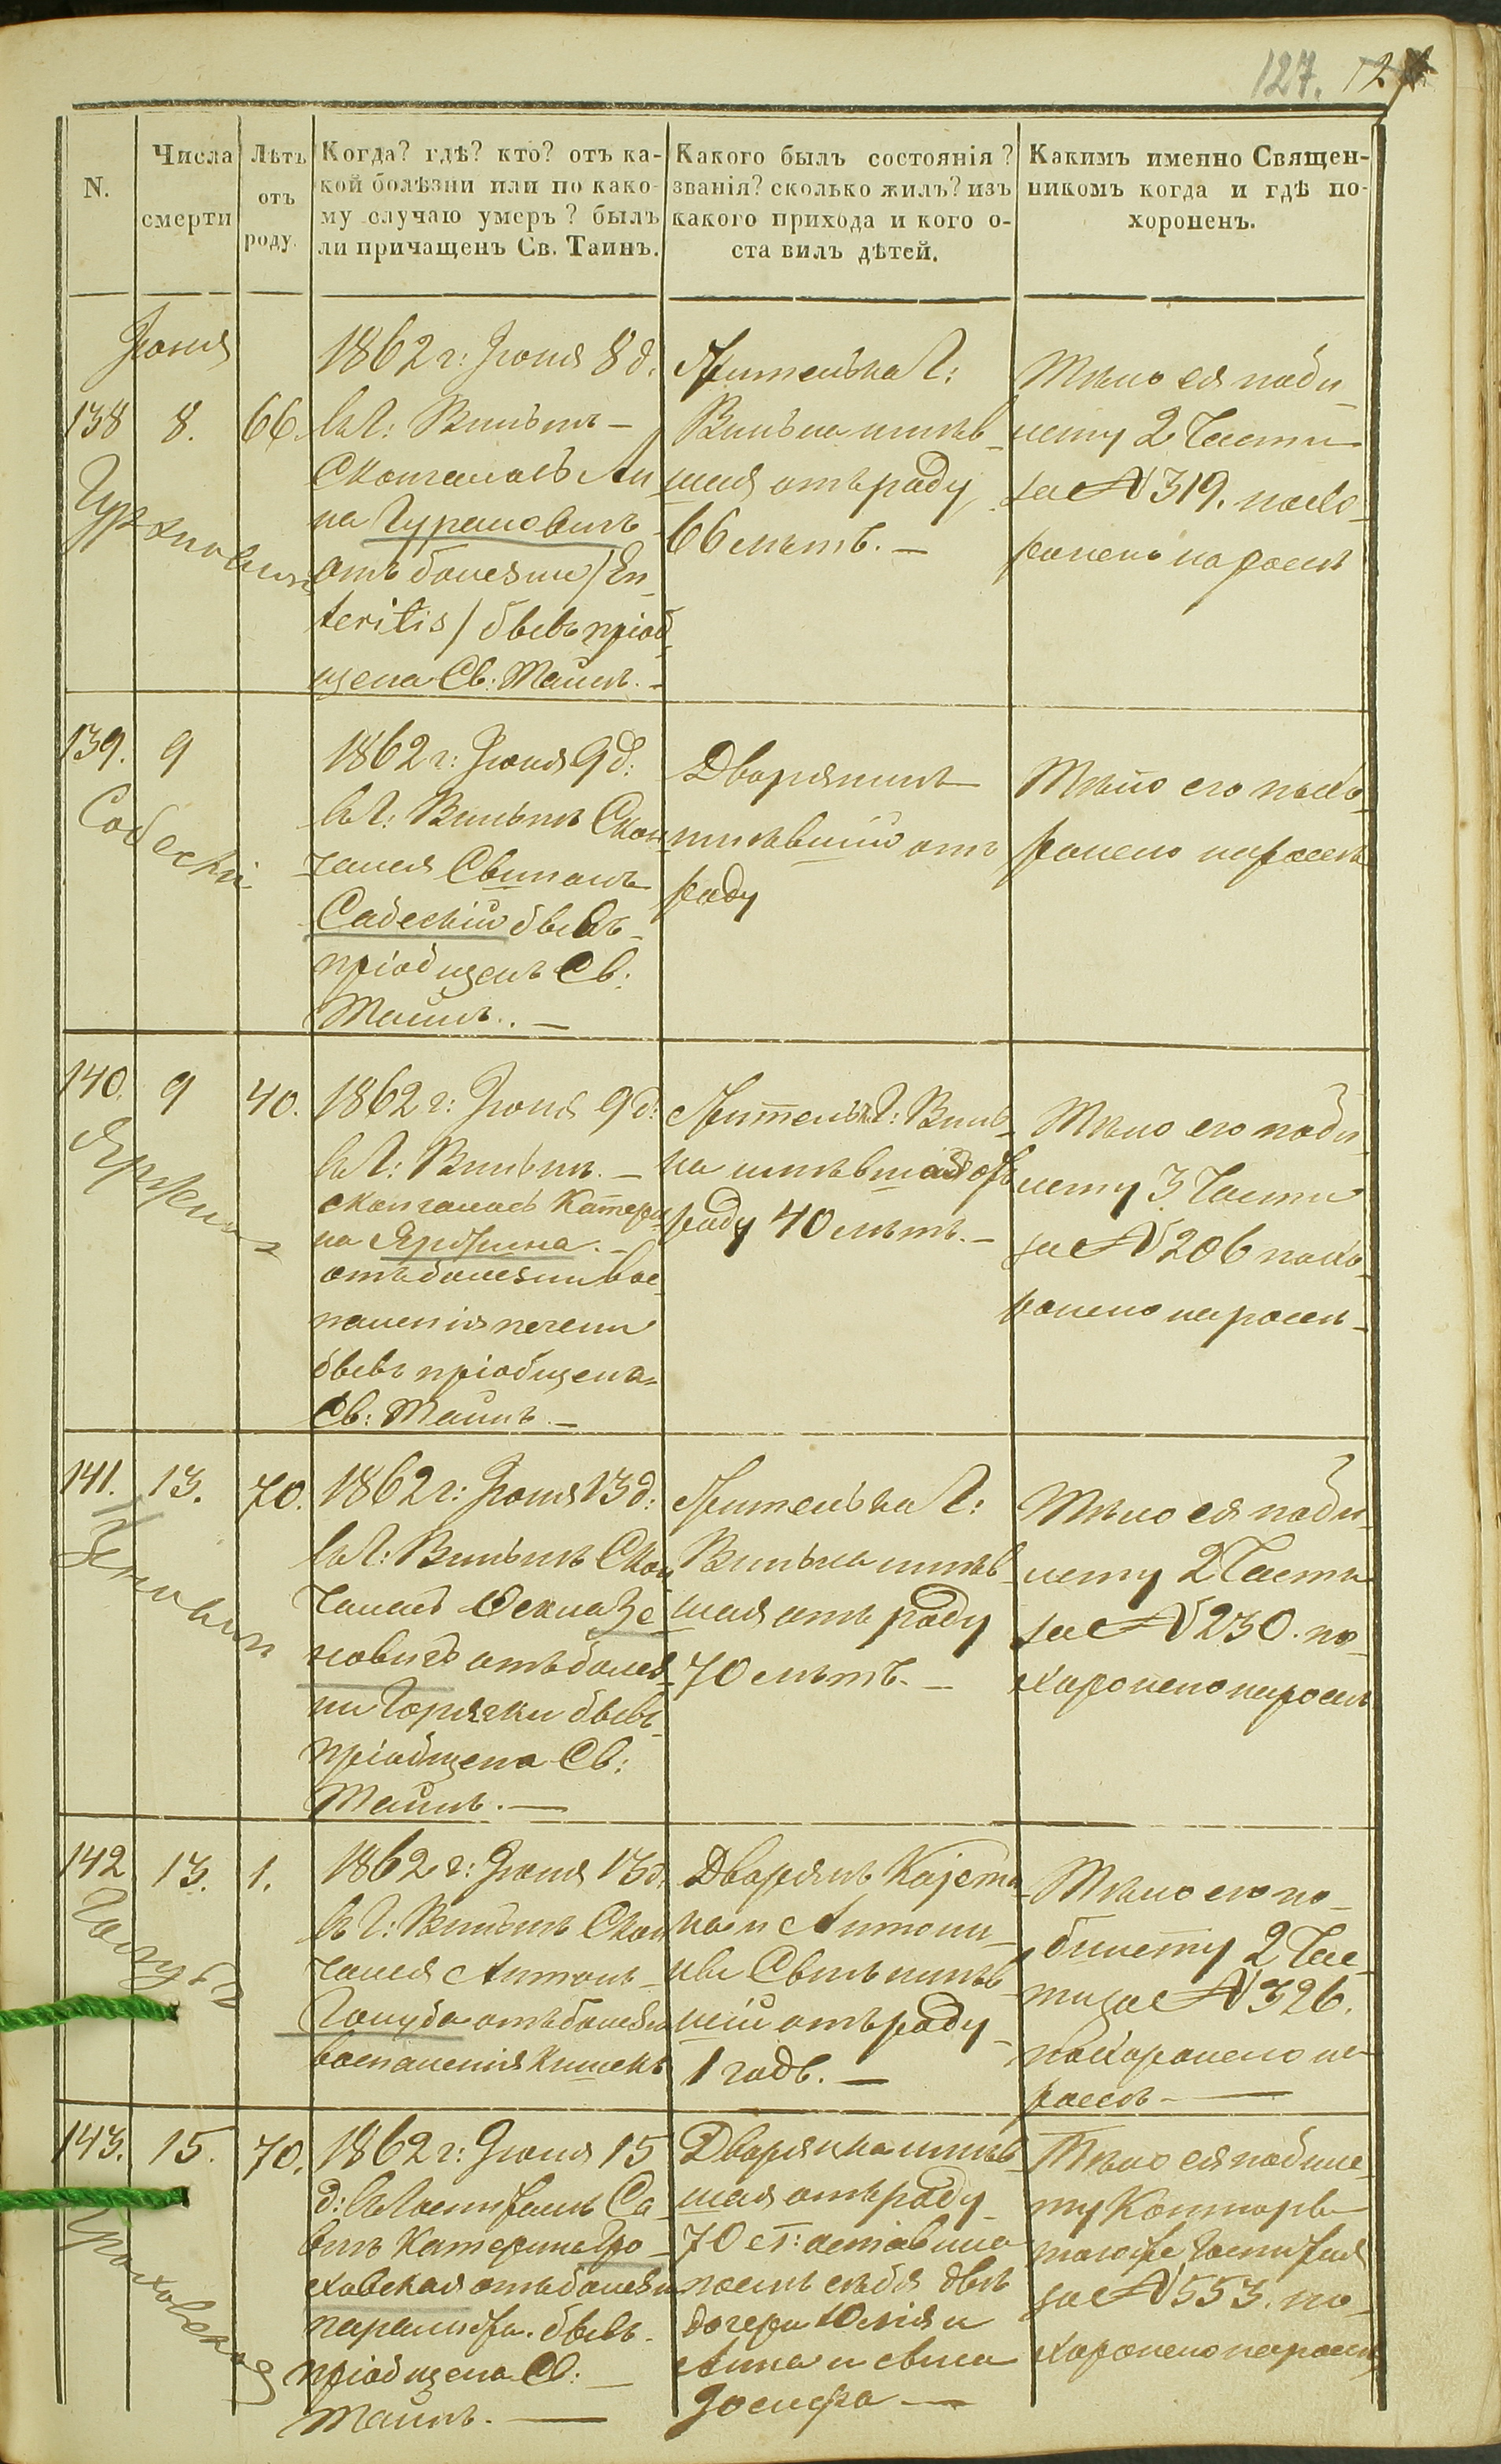 127.
N.
Числа
смерти
Лѣтъ
отъ
роду.
Когда? гдѣ? кто? отъ ка-
кой болѣзни или по како-
му случаю умеръ? былъ
ли причащенъ Св. Таинъ.
Какого былъ состоянія?
званія? сколько жилъ? изъ
какого прихода и кого о-
ста вилъ дѣтей.
Какимъ именно Священ-
никомъ когда и гдѣ по-
хороненъ.
Іюня
138
8.
66.
1862 г: Іюня 8 д.
въ Г: Вильнѣ –
Скончалась Ан
на Гурановичъ
отъ болезни /En-
teritis/ бывъ пріоб
щена Св: Таинъ. –
Жителька Г:
Вильна имѣв-
шая отъ роду
66 лѣтъ. –
Тѣло ея по би-
лету 2 Части
за № 319. похо-
ронено на россѣ
139.
9
Собескій
1862 г: Іюня 9 д:
въ Г: Вильнѣ Скон
чался
Сабескій бывъ
пріобщенъ Св:
Таинъ. –
Дворянинъ
имѣвшій отъ
роду
Тѣло его похо-
ронено на россѣ
140.
9
40.
1862 г: Іюня 9 д:
въ Г: Вильнѣ. –
скончалась Катери
на
отъ болезни вос
паленія печени
бывъ пріобщена
Св: Таинъ. –
Жителька Г: Виль-
на имѣвшая отъ
роду 40 лѣтъ. –
Тѣло его по би
лету 3 Части
за № 206 похо-
ронено на россѣ –
141.
13.
70.
Зеновичъ
1862 г: Іюня 13 д:
въ Г: Вильнѣ Скон
чалась Текла Зе
новичъ отъ болез
ни Горячки бывъ
пріобщена Св:
Таинъ. –
Жителька Г:
Вильна имѣв-
шая отъ роду
70 лѣтъ. –
Тѣло ея по би-
лету 2 Части
за № 230. по-
хоронено на россѣ
142
13.
1.
Голубъ
1862 г: Іюня 13 д.
въ Г: Вильнѣ Скон
чался Антонъ
Голубъ отъ болезни
воспаленія кишекъ
Дворянъ Каjета-
на и Антони-
ны Сынъ имѣв
шій отъ роду
1 годъ. –
Тѣло его по
билету 2 Час-
ти за № 326.
похоронено на
россѣ –
143.
15.
70.
Гроховская
1862 г: Іюня 15
д: въ Госпиталѣ Са-
вичъ Катерина Гро-
ховская отъ болезни
паралижа. бывъ
пріобщена Св: –
Таинъ. –
Дворянка имѣв
шая отъ роду
70 л: оставила
после себя двѣ
дочери Юлія и
Анна и сына
Іосифа –
Тѣло ея по биле-
ту Конторы
тогоже Госпиталя
за № 553. по-
хоронено на россѣ